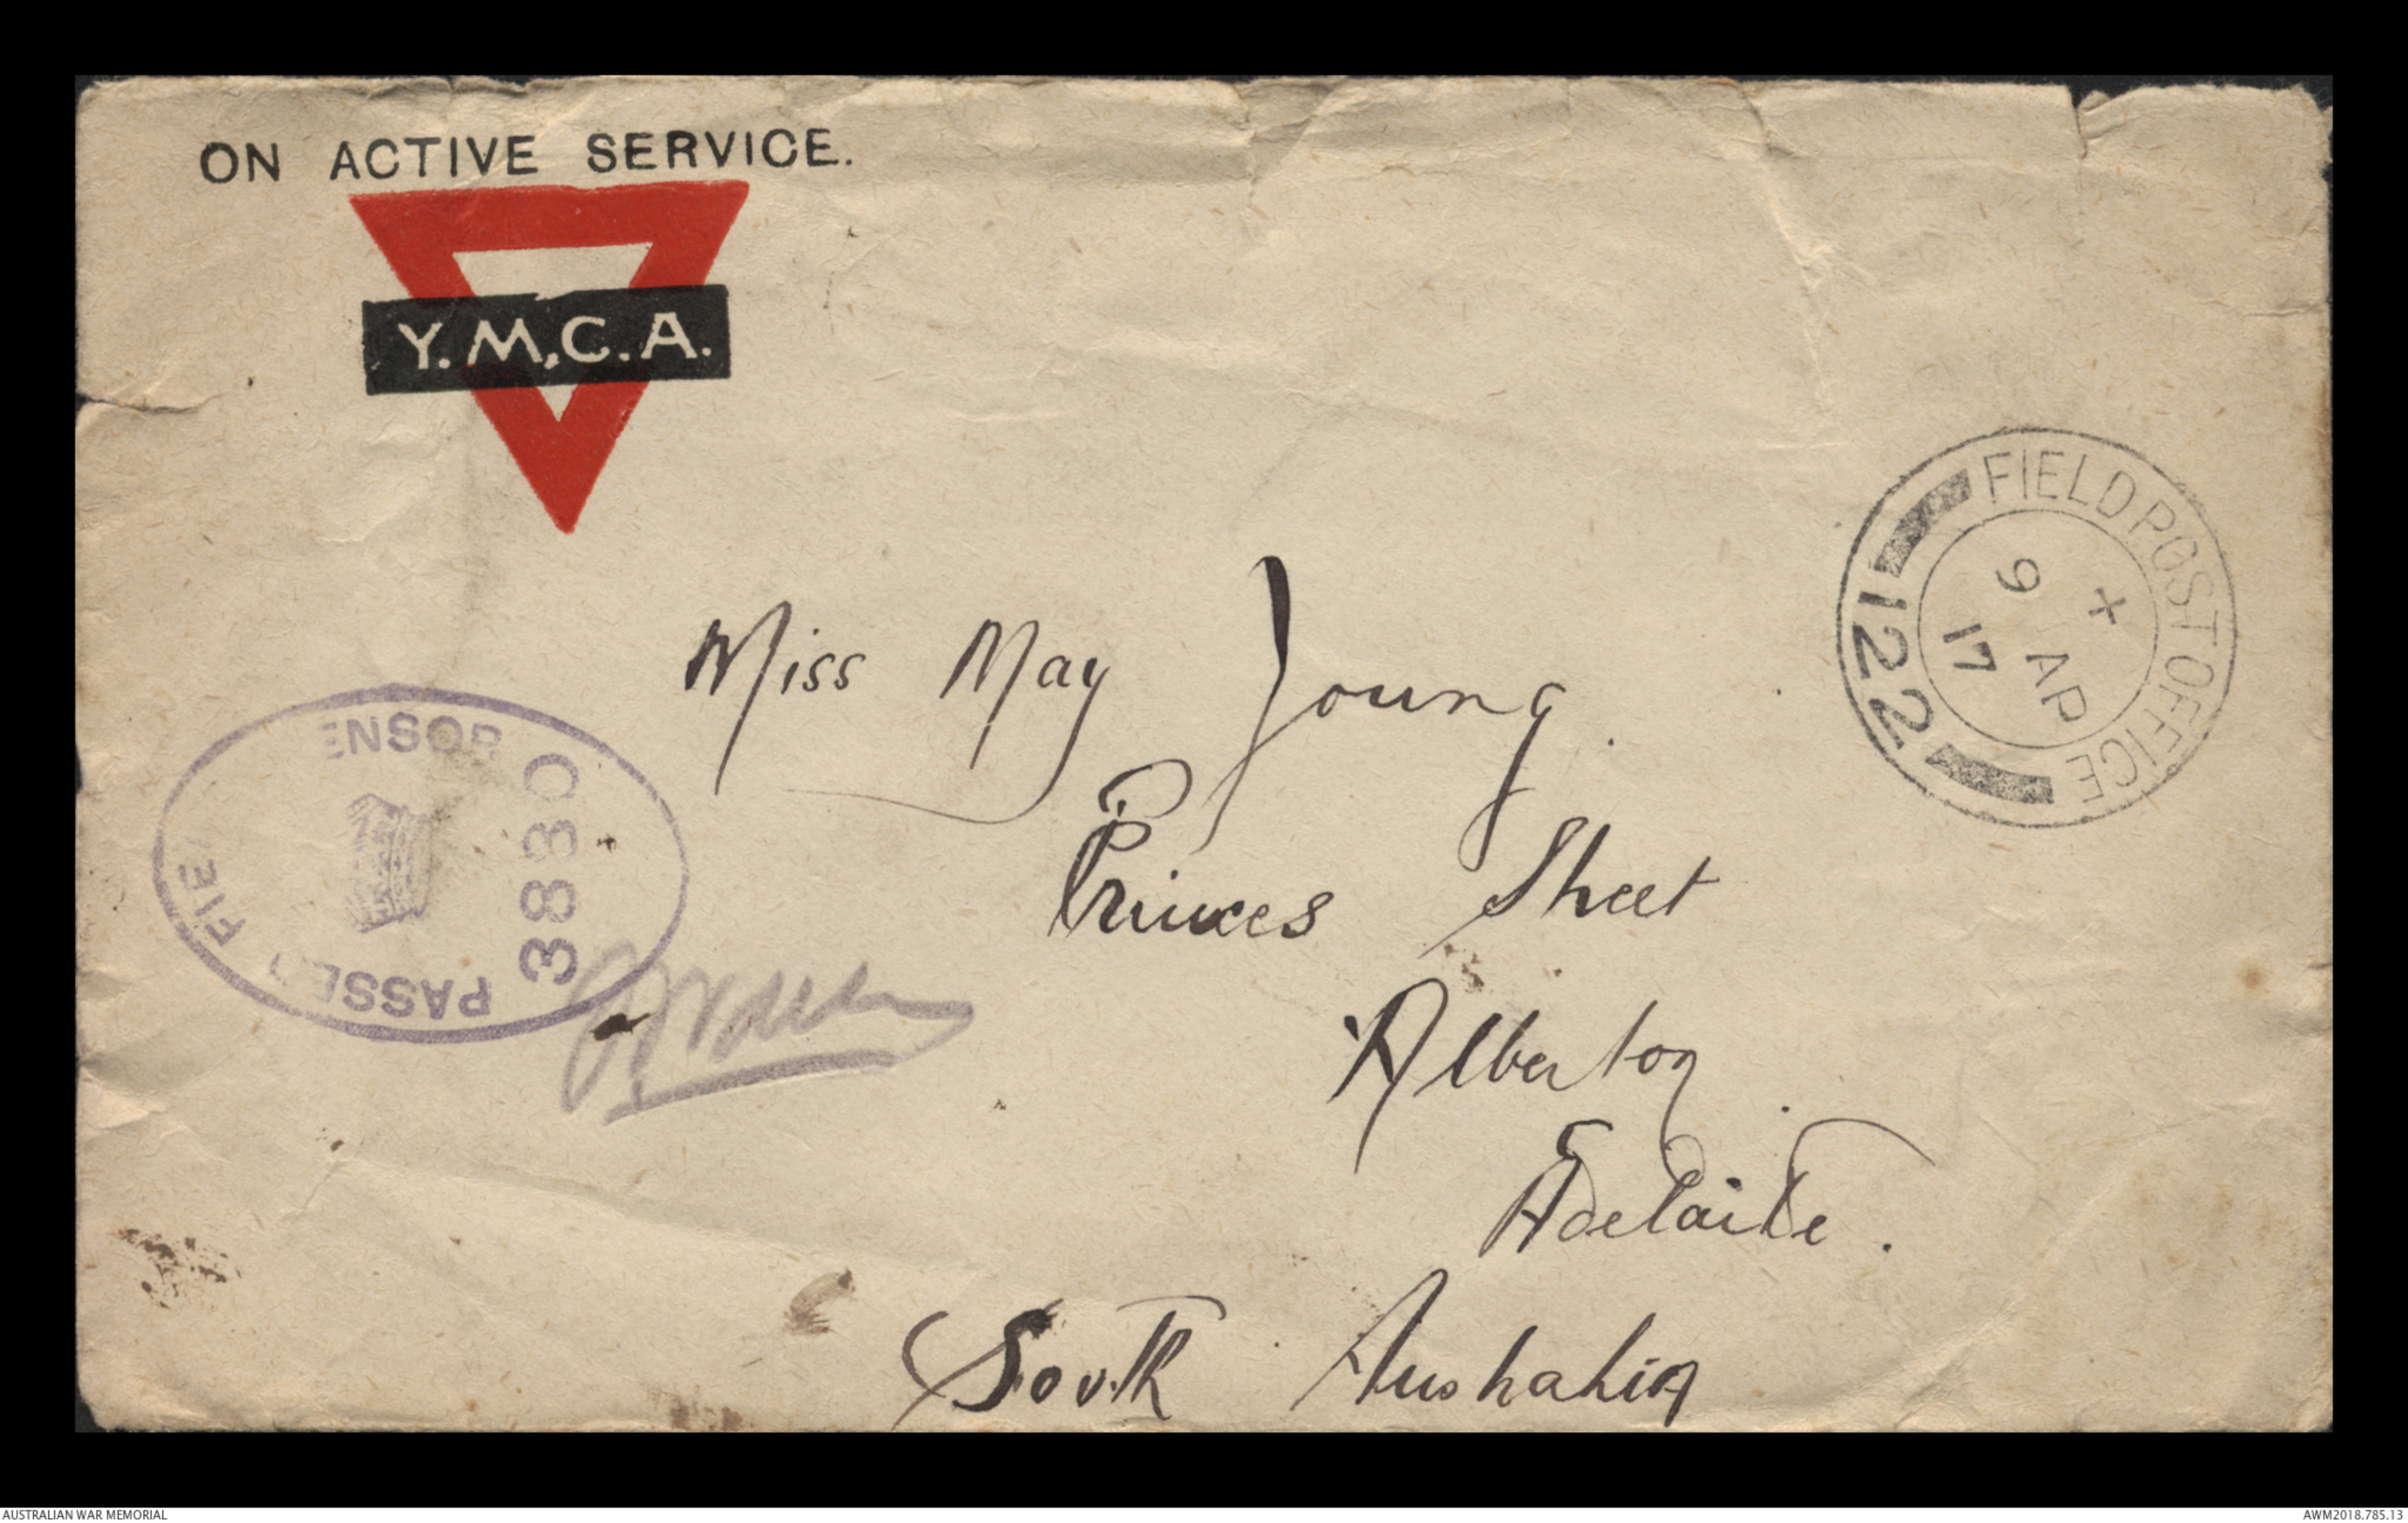 ON ACTIVE SERVICE.
Y.M.C.A.
FIELD POST OFFICE
X
9 AP
17
122
Miss May Young.
Princes Street
Alberton
Adelaide.
South Australia
PASSE FIE ENSOR
3830
AUSTRALIAN WAR MEMORIAL
AWM2018.785.13